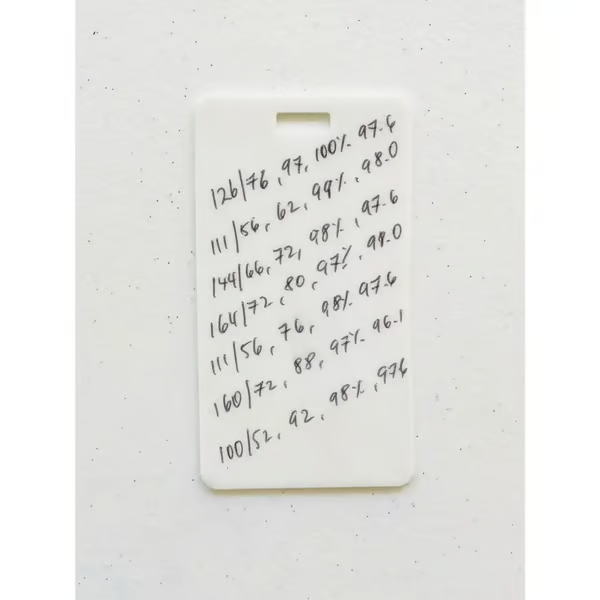 126/76, 97, 100%. 97.6
111/56, 62, 99%, 98.0
144/66, 72, 98%, 97.6
164/72, 80, 97%, 98.0
111/56, 76, 98%. 97.6
160/72, 88, 97%. 96.1
100/52, 92, 98%, 976